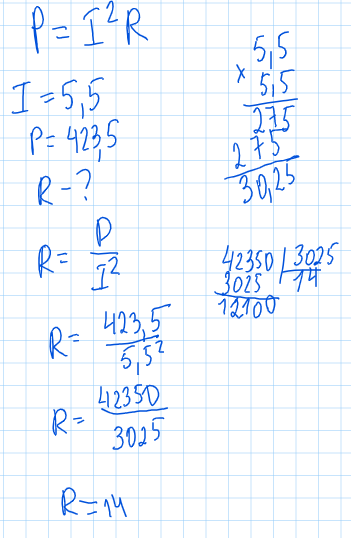 P = I²R
I = 5,5
P = 423,5
R - ?
R = P / I²
R = 423,5 / 5,5²
R = 42350 / 3025
R = 14
5,5
× 5,5
275
275
30,25
42350 | 3025
3025 14
12100